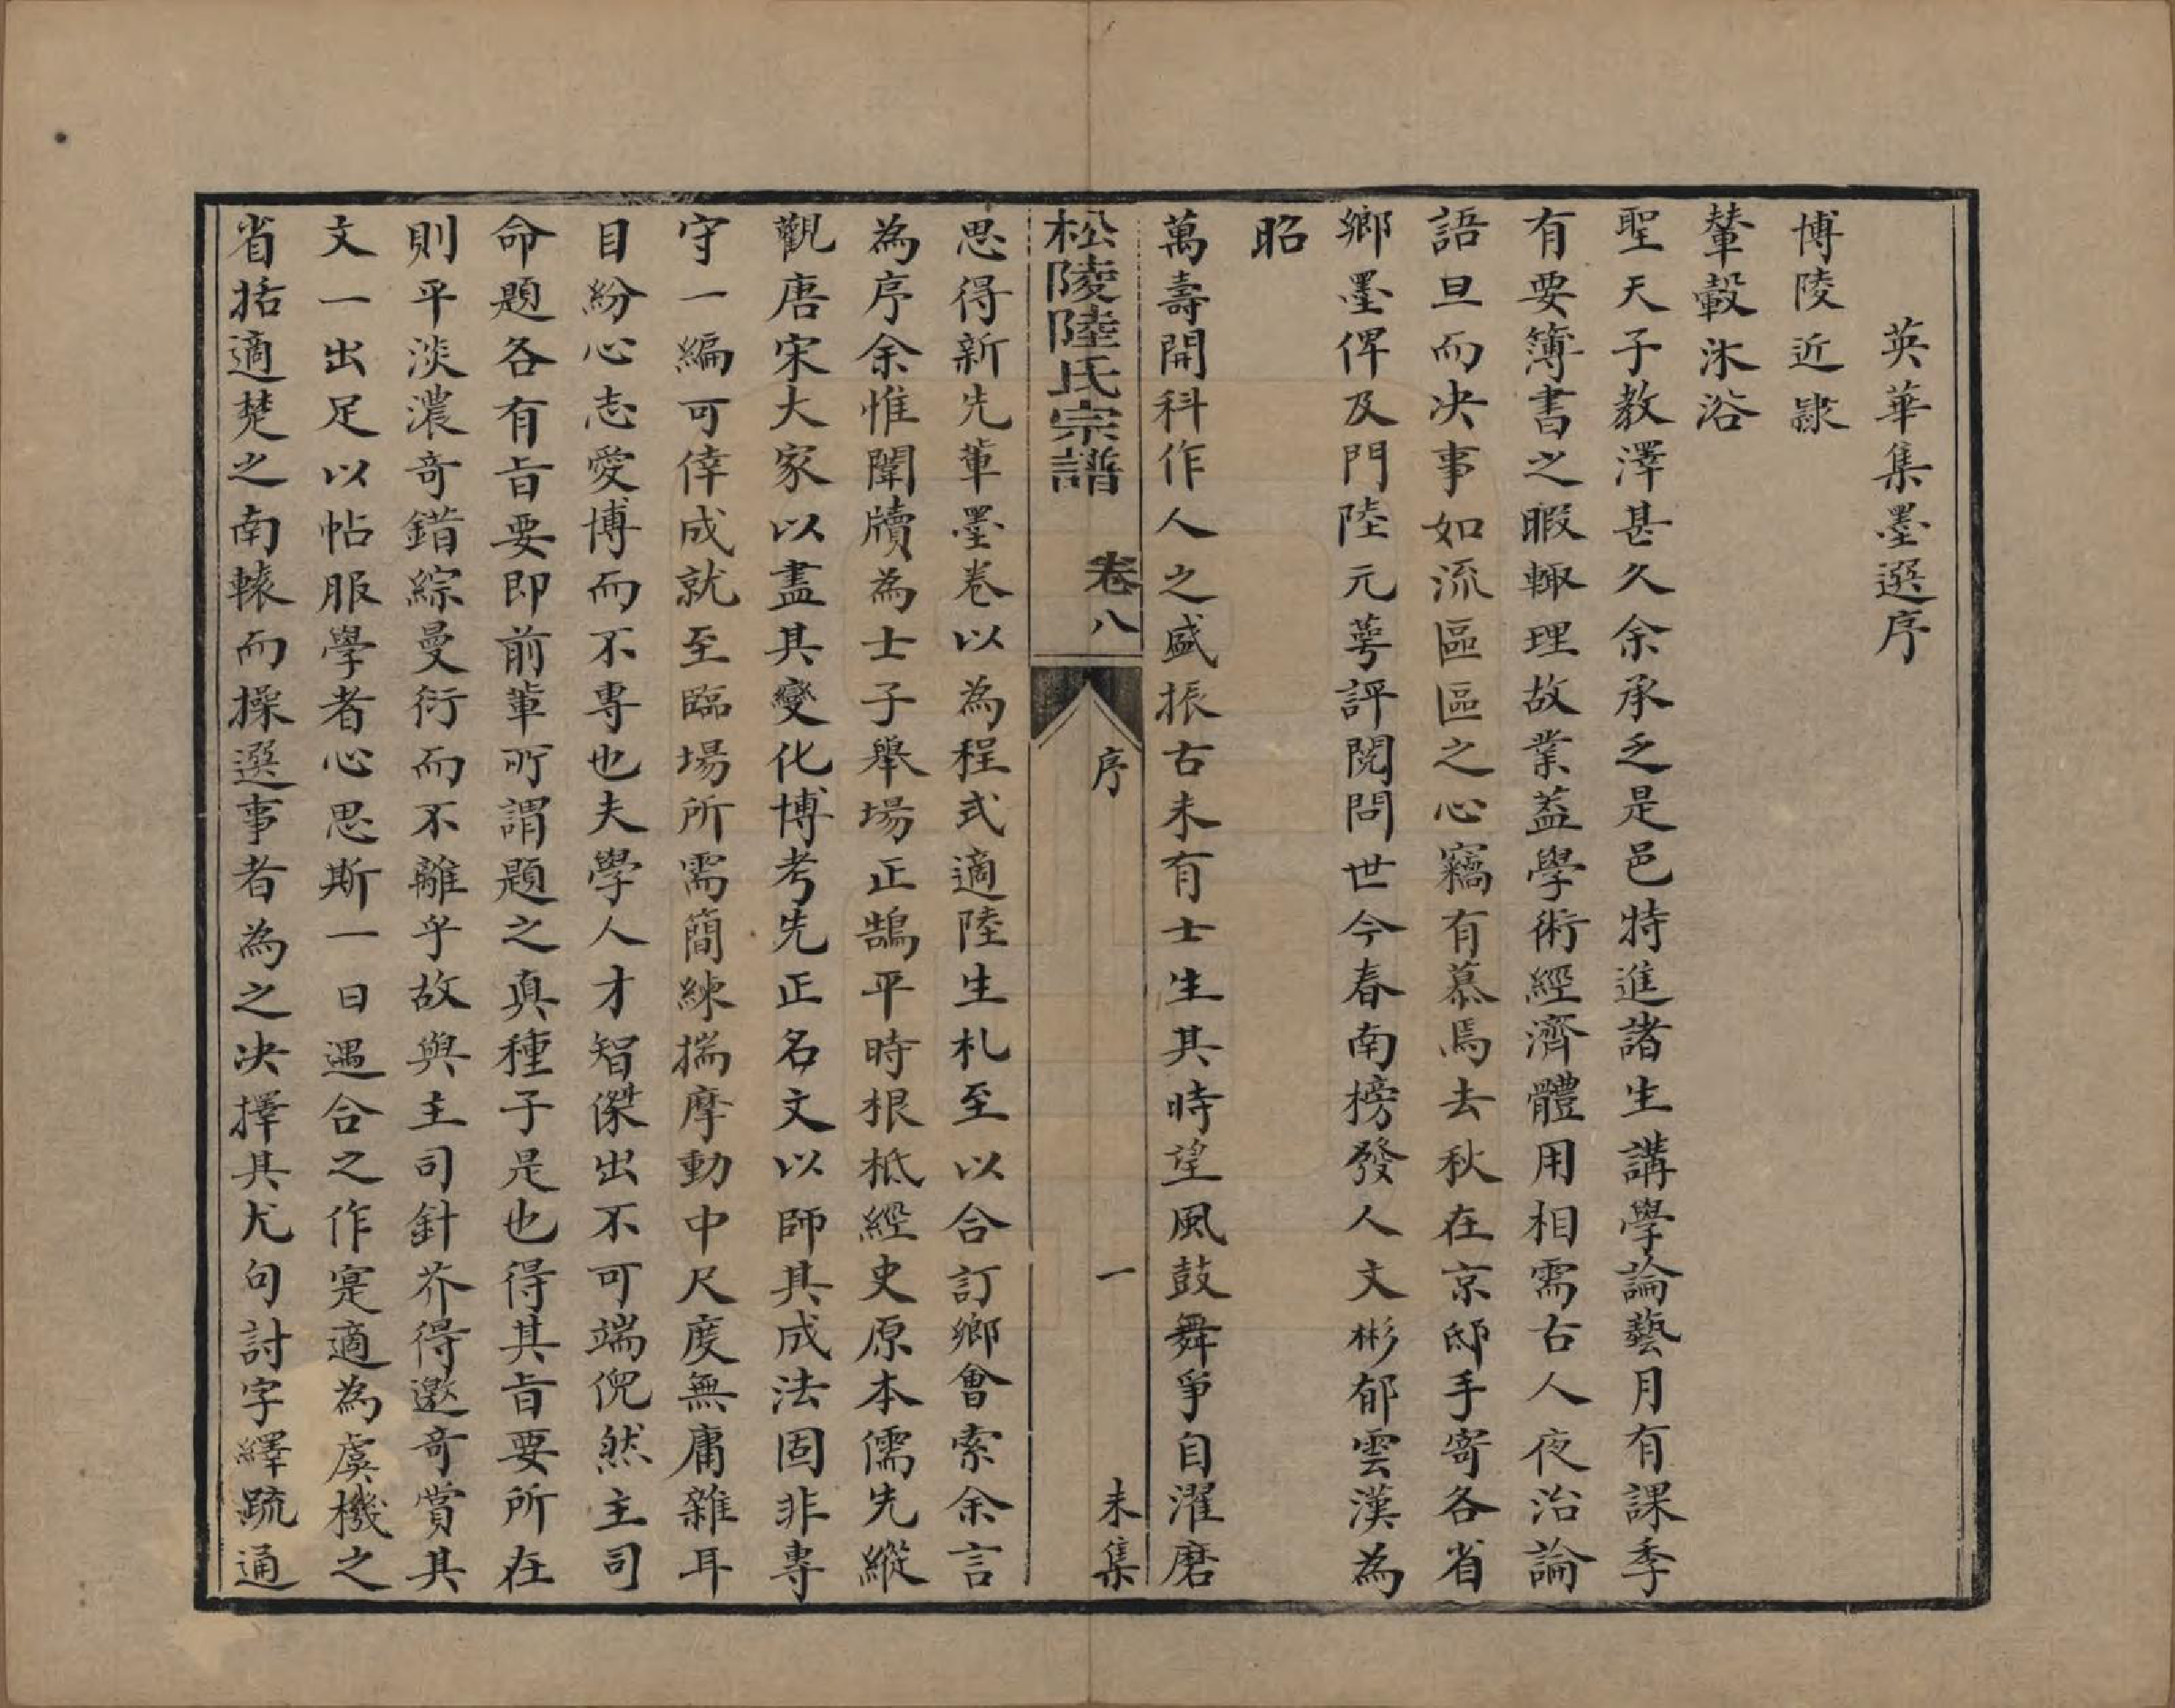 英華集墨選序
博陵近隷
輦轂沐浴
聖天子教澤甚久余承乏是邑特進諸生講學論藝月有課季
有要簿書之暇輙理故業葢學術經濟體用相需古人夜治論
語旦而决事如流區區之心竊有慕焉去秋在京邸手寄各省
鄉墨俾及門陸元萼評閱問世今春南榜發人文彬郁雲漢為
昭
萬壽開科作人之盛振古未有士生其時望風鼓舞爭自濯磨
松陵陸氏宗譜 卷八 序 一 未集
思得新先軰墨卷以為程式適陸生札至以合訂鄉會索余言
為序余惟闈牘為士子舉場正鵠平時根柢經史原本儒先縱
觀唐宋大家以盡其變化博考先正名文以師其成法固非專
守一編可倖成就至臨場所需簡練揣摩動中尺度無庸雜耳
目紛心志愛博而不專也夫學人才智傑出不可端倪然主司
命題各有旨要即前軰所謂題之真種子是也得其旨要所在
則平淡濃奇錯綜曼衍而不離乎故與主司針芥得邀奇賞其
文一出足以帖服學者心思斯一日遇合之作寔適為虞機之
省括適楚之南轅而操選事者為之决擇其尤句討字繹疏通